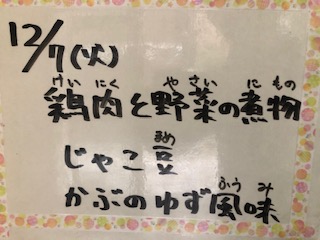 12/7(火)
鶏肉と野菜の煮物
けいにく やさい にもの
じゃこ豆
まめ
かぶのゆず風味
ふうみ